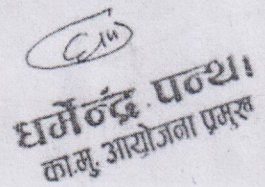 धर्मेन्द्र पन्थ।
का.मु. आयोजना प्रमुख